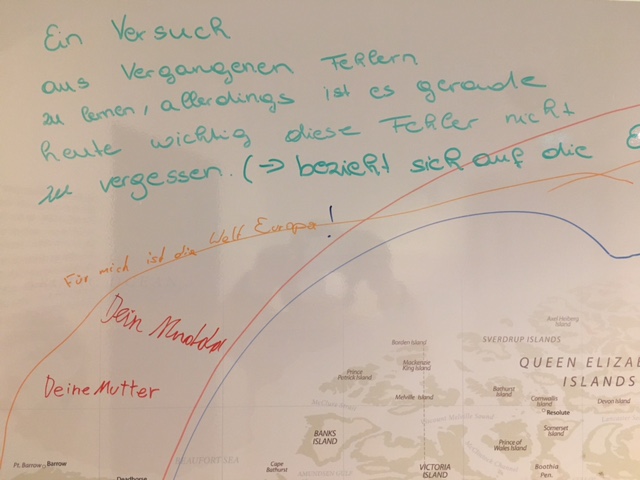 Ein Versuch
aus Vergangenen Fehlern
zu lernen, allerdings ist es gerade
heute wichtig diese Fehler nicht
zu vergessen. (⇒ bezieht sich auf die
Für mich ist die Welt Europa!
Dein
Deine Mutter
Axel Heiberg
Island
SVERDRUP ISLANDS
Borden Island
Mackenzie
King Island
Prince
Patrick Island
QUEEN ELIZA
ISLANDS
Melville Island
Bathurst
Island
Cornwallis
Island
Devon Island
Resolute
Somerset
Island
BANKS
ISLAND
Prince of
Wales Island
Pt. Barrow
Barrow
BEAUFORT SEA
Cape
Bathurst
AMUNDSEN GULF
VICTORIA
ISLAND
Boothia
Pen.
Deadhorse